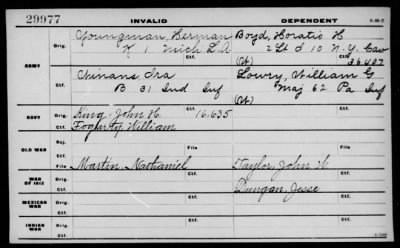 29977 INVALID DEPENDENT
Youngman, Herman Boyd, Horatio H
Orig. K 1 Mich L.A. 2 Lt I 10 N.Y. Cav
ARMY (Ct) 36407
Ira Lowry, William G
B 31 Ind Inf Maj 62 Pa Inf
Ctf. (Ct)
NAVY Orig. King, John H. 16,635
Ctf. Fogarty, William
OLD WAR Rej. File
Ctf. File
WAR OF 1812 Orig. Martin Nathaniel Taylor, John W
Ctf. Dungan, Jesse
MEXICAN WAR Orig. Ctf.
Ctf.
INDIAN WAR Orig. Ctf.
Ctf.